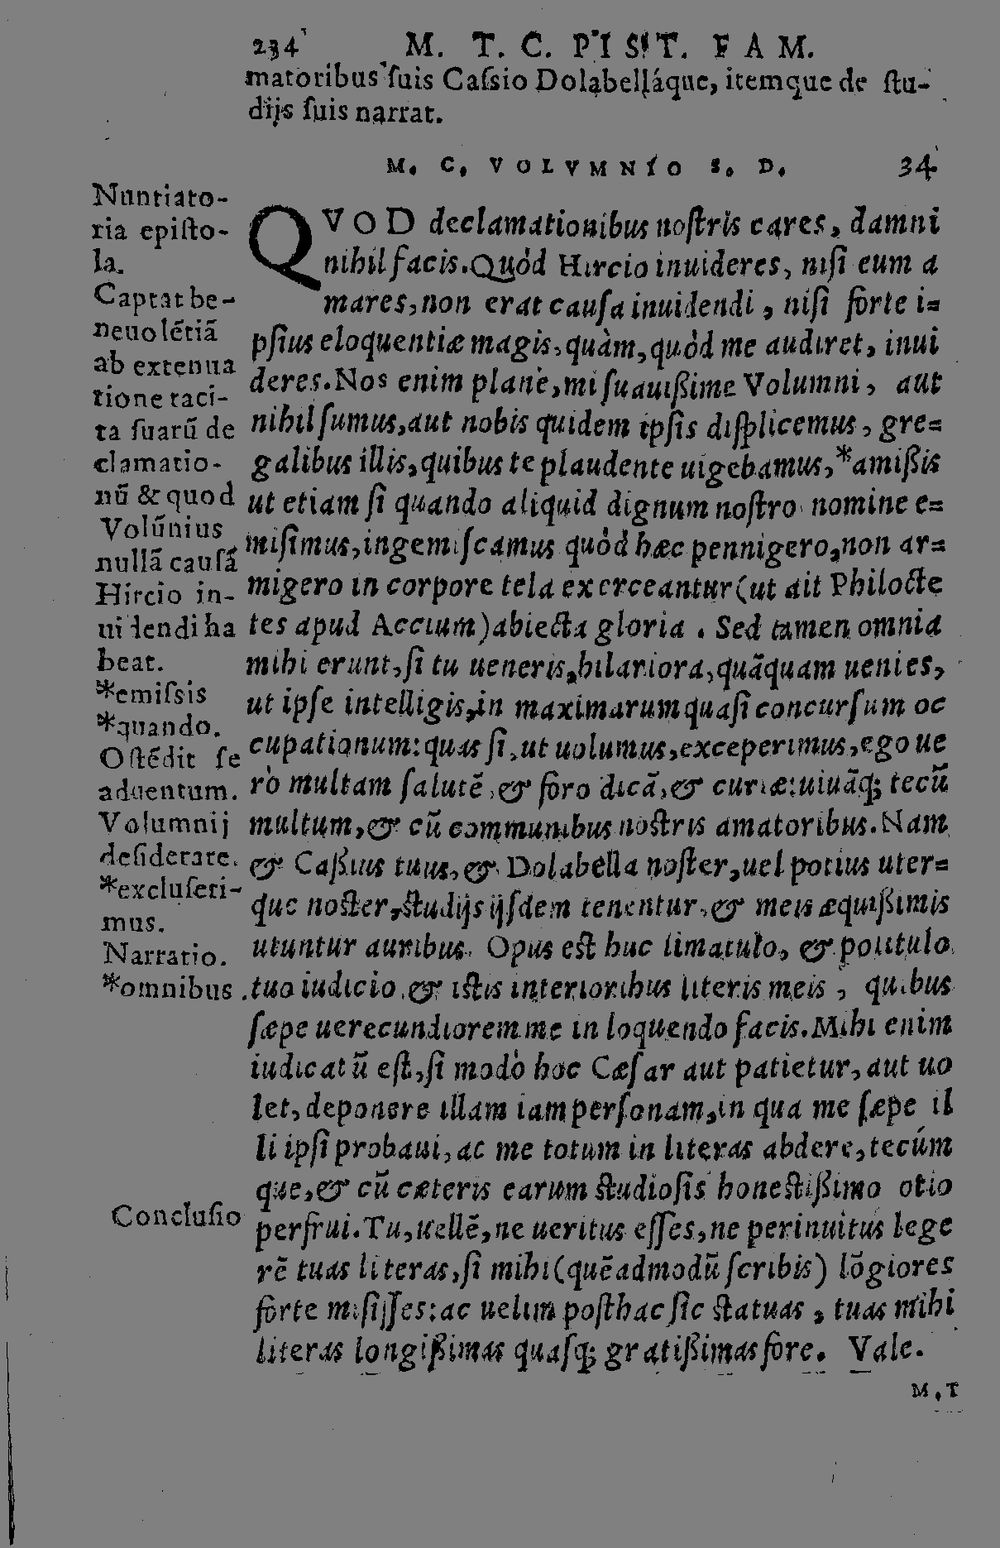 234 M. T. C. PIST. FAM.
matoribus suis Cassio Dolabelláque, itemque de stu-
dijs suis narrat.
M. C. VOLVMNIO S. D. 34
QVOD declamationibus nostris cares, damni
nihil facis. Quòd Hircio inuideres, nisi eum a
mares, non erat causa inuidendi, nisi forte i=
psius eloquentiæ magis, quàm, quòd me audiret, inui
deres. Nos enim planè, mi suauißime Volumni, aut
nihil sumus, aut nobis quidem ipsis displicemus, gre=
galibus illis, quibus te plaudente uigebamus, *amißis
ut etiam si quando aliquid dignum nostro nomine e=
misimus, ingemiscamus quòd hæc pennigero, non ar=
migero in corpore tela exerceantur (ut ait Philocte
tes apud Accium) abiecta gloria. Sed tamen omnia
mihi erunt, si tu ueneris, hilariora, quãquam uenies,
ut ipse intelligis, in maximarum quasi concursum oc
cupationum: quas si, ut uolumus, exceperimus, ego ue
rò multam salutẽ, & foro dicã, & curiæ: uiuãq; tecũ
multum, & cũ communibus nostris amatoribus. Nam
& Caßius tuus, & Dolabella noster, uel potius uter=
que noster, studijs ijsdem tenentur, & meis æquißimis
utuntur auribus. Opus est huc limatulo, & politulo
tuo iudicio, & istis interioribus literis meis, quibus
sæpe uerecundiorem me in loquendo facis. Mihi enim
iudicatũ est, si modò hoc Cæsar aut patietur, aut uo
let, deponere illam iam personam, in qua me sæpe il
li ipsi probaui, ac me totum in literas abdere, tecúm
que, & cũ cæteris earum studiosis honestißimo otio
perfrui. Tu, uellẽ, ne ueritus esses, ne perinuitus lege
rẽ tuas literas, si mihi (quẽadmodũ scribis) lõgiores
forte misisses: ac uelim posthac sic statuas, tuas mihi
literas longißimas quasq; gratißimas fore. Vale.
M. T
Nuntiato-
ria episto-
la.
Captat be-
neuolẽtiã
ab extenua
tione taci-
ta suarũ de
clamatio-
nũ & quod
Volũnius
nullã causã
Hircio in-
uidendi ha
beat.
*emissis
*quando.
Ostẽdit se
aduentum.
Volumnij
desiderare.
*excluseri-
mus.
Narratio.
*omnibus.
Conclusio